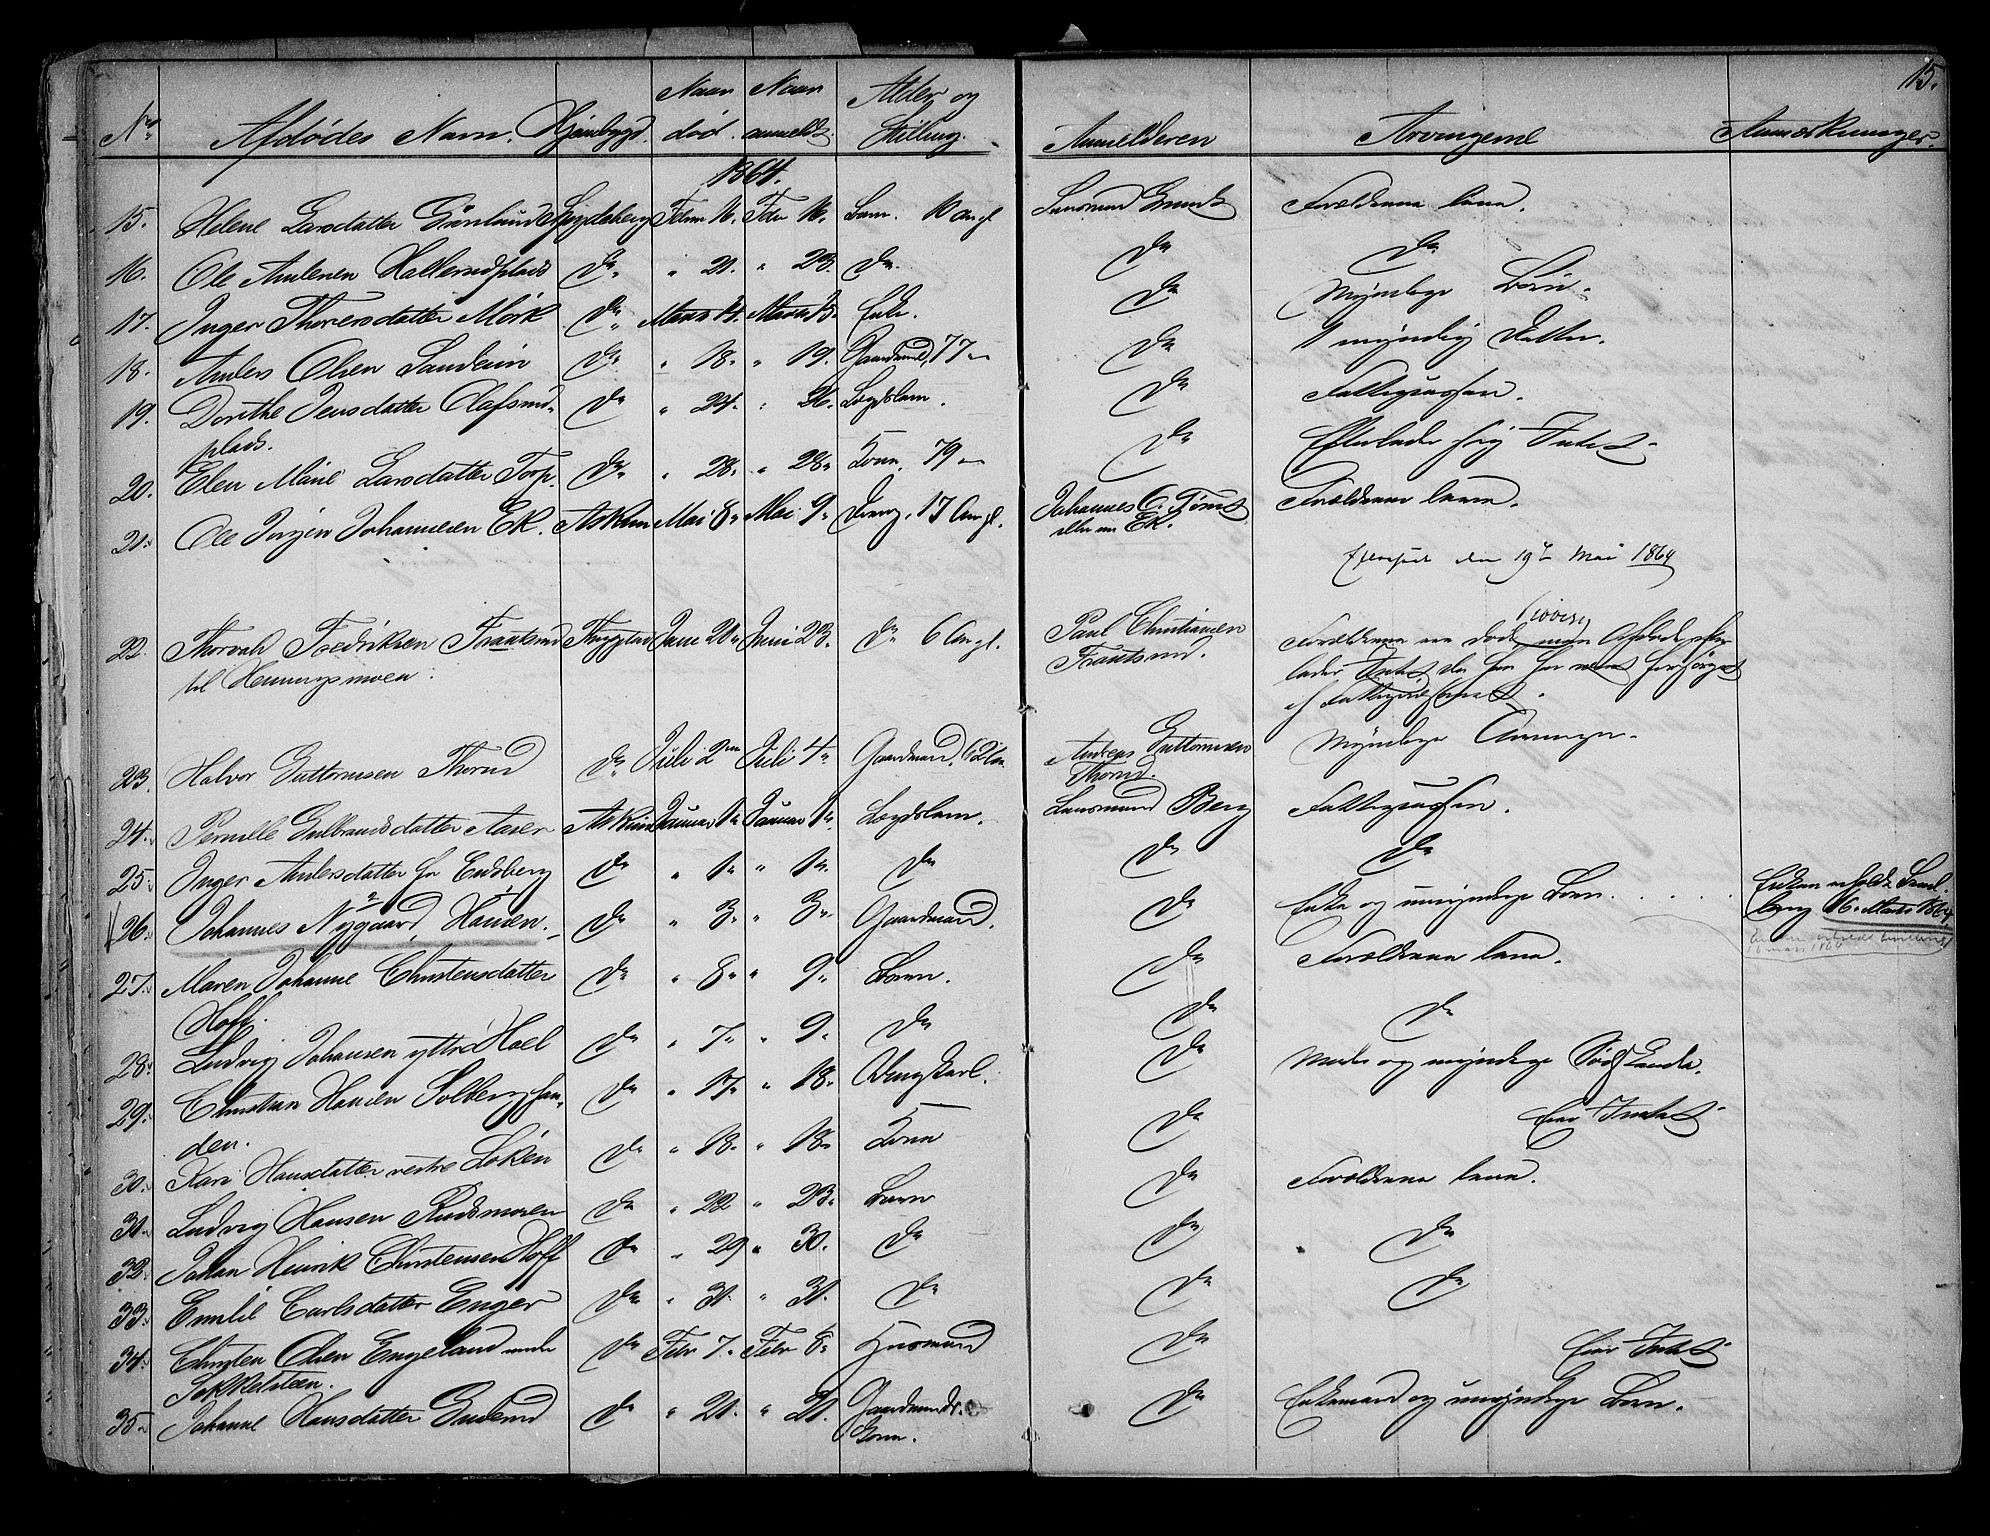 15.
No Afdødes Navn. Hjembygd. Naar død. Naar anmeldt. Alder og Stilling. Anmelderen Arvingerne Anmærkninger.
1864.
15. Helene Larsdatter Grønlund Spydeberg Febru 16. Febr 16. Barn. 10 Aar gl Lensmand Forældrene leve.
16. Ole Andersen Hallerudplads do " 21. " 23. do. do do
17. Inger Thoresdatter Mörk do " Marts 14. Marts 15. Enke. do Myndige Børn.
18. Anders Olsen Sandstin do " 18. " 19. Gaardmand, 77 " do 1 myndig Datter.
19. Dorthe Jensdatter Olafsrud- do " 24. " 26. Lægdslem. do Fattigcassen.
plads.
20. Elen Marie Larsdatter Torp. do " 28. " 28. Kone, 79 " do Efterlader sig Intet.
21. Ole Jørgen Johannesen Ek. Askim Mai 8. Mai 9. Dreng, 13 Aar gl. Johannes C. Ek. Forældrene leve.
den 19de Mai 1864
22. Thorvald Fredriksen Frantsrud Trygstad Juni 20. Juni 23. do 6 Aar gl. Paul Christiansen Frantsrud. Forældrene ere døde men Afdøde efter
til Henningsmoen. lader Intet da han har været forsørget
af Fattigvæsenet.
23. Halvor Guttormsen Thorud do Juli 2den Juli 4. Gaardmand, 62 Andreas Guttormsen Thorud. Myndige Arvinger.
24. Pernille Gulbrandsdatter Aaser Askim Januar 1. Januar 1. Lægdslem. Lensmand Berg Fattigcassen.
25. Inger Andersdatter fr Eidsberg do " 1. " 1. do do do
26. Johannes Nygaard, Hansen. do " 3. " 3. Gaardmand. do Enke og umyndige Børn. Enken erholdt Bevil-
ling 16. Marts 1864.
27. Maren Johanne Christensdatter do " 8. " 9. Barn. do Forældrene leve.
Hoff.
28. Ludvig Johansen ytre Hoel do " 7. " 9. do do do
29. Christian Hansen Solbergfan- do " 17. " 18. Ungkarl. do Moder og myndige Sødskende.
den.
30. Kari Hansdatter vestre Løken do " 18. " 18. Kone do Eier Intet.
31. Ludvig Hansen Rudsmoen do " 22 " 23. Barn do Forældrene leve.
32. Johan Henrik Christensen Hoff do " 29 " 30. do do do
33. Emilie Carlsdatter Enger do " 31. " 31. do do do
34. Christen Olsen Engeland do Febr 7. Febr 8. Husmand do Eier Intet.
35. Johanne Hansdatter do " 21. " 21. Gaardmands- Kone. do Enkemand og umyndige Børn.